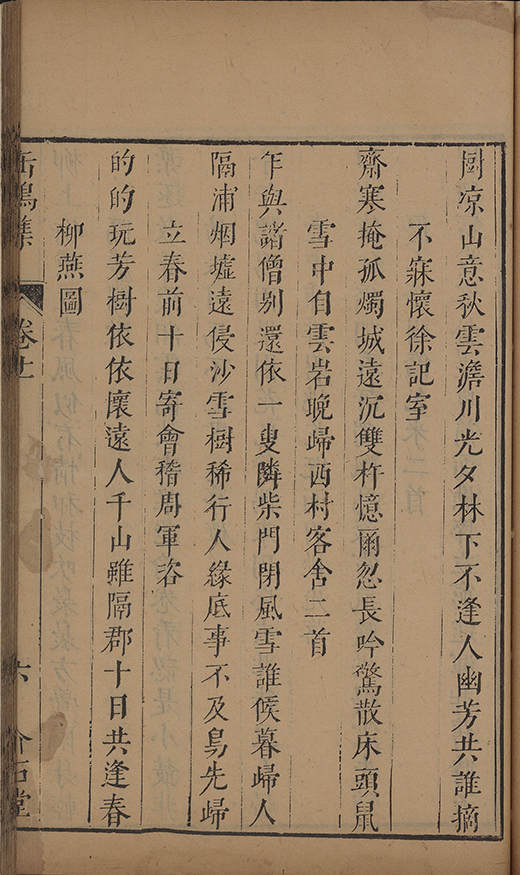 厨凉山意秋雲澹川光夕林下不逢人幽芳共誰摘
不寐懷徐記室
齋寒掩孤燭城遠沉雙杵憶爾忽長吟驚散床頭鼠
雪中自雲岩晚歸西村客舍二首
乍與諸僧别還依一叟隣柴門閉風雪誰候暮歸人
隔浦烟墟遠侵沙雪樹稀行人緣底事不及鳥先歸
立春前十日寄會稽周軍咨
的的玩芳樹依依懷遠人千山雖隔郡十日共逢春
柳燕圖
鳴集
卷十
六
介石堂